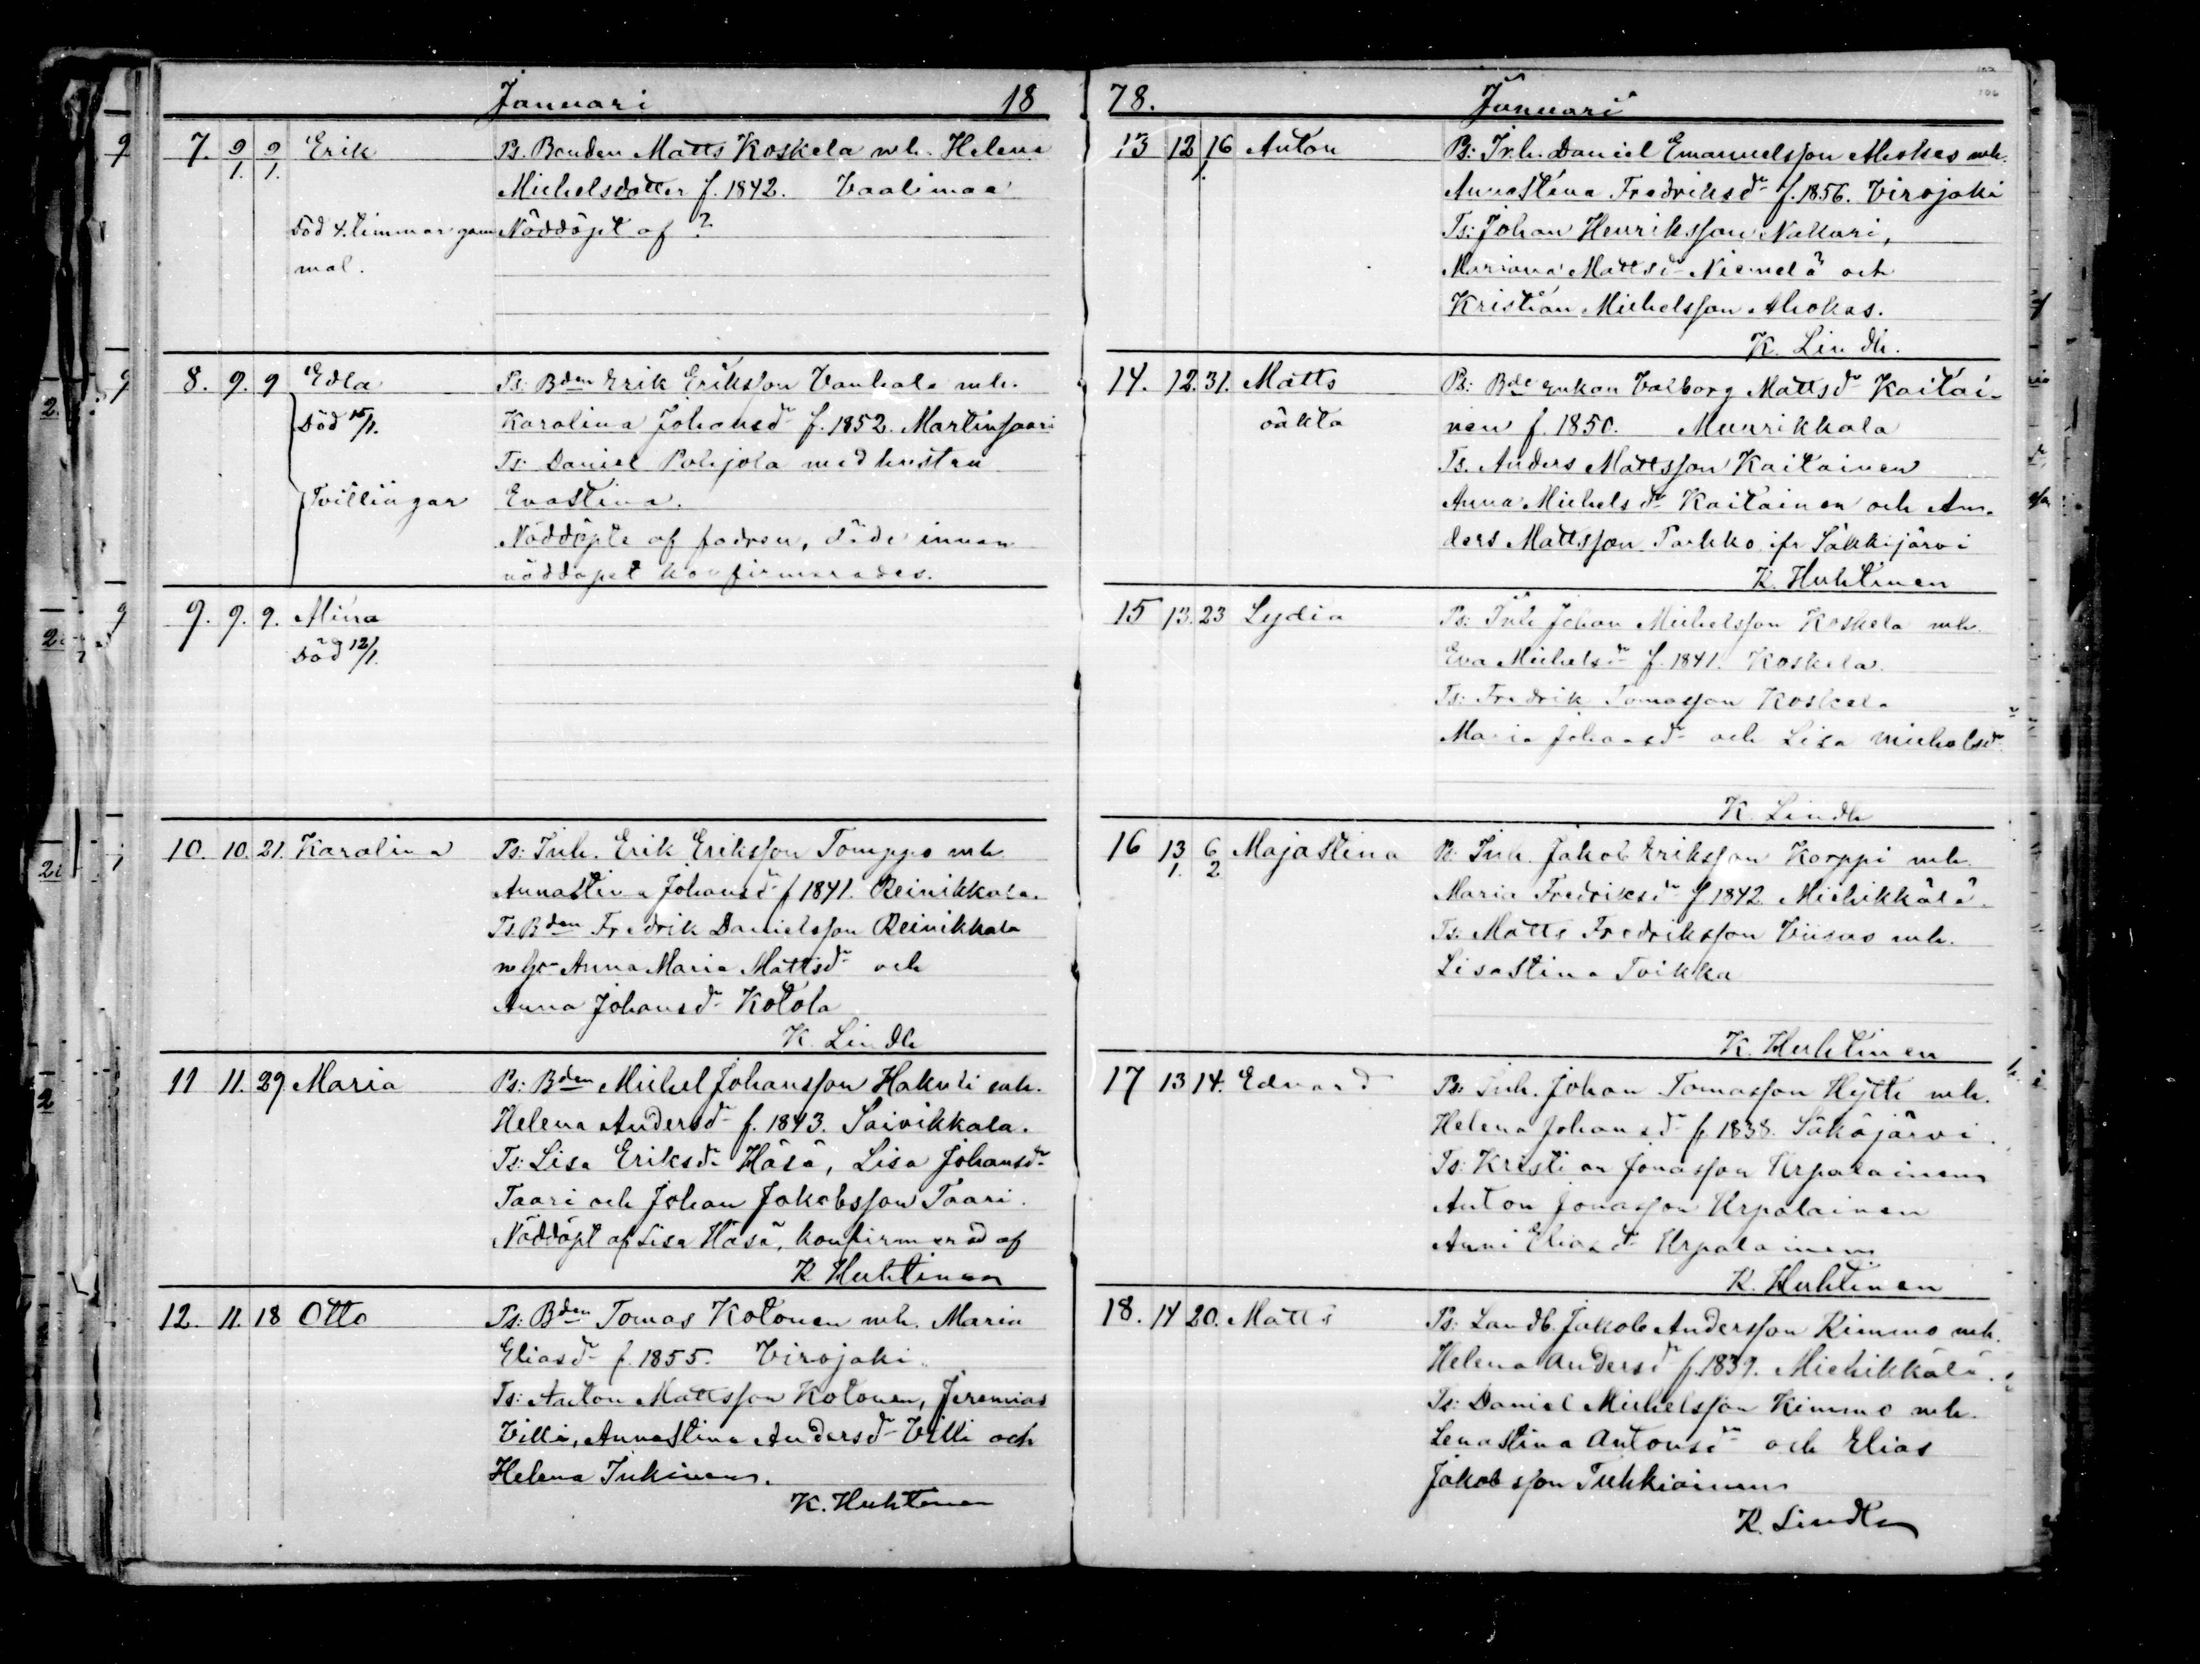 Januari 18
7. 9/1. 9/1. Erik Ps. Bonden Matts Koskela mh. Helena
Michelsdotter f. 1842. Vaalimaa
Död 4. timmar gam Nöddöpt af ?
mal.
8. 9. 9 Edla Ps: Bden Erik Eriksson Vanhala mh.
Död 15/1. Karolina Johansdr f. 1852. Martinsaari
Ts: Daniel Pohjola med hustru
Tvillingar Evastina.
Nöddöpte af fadren, döde innan
nöddopet konfirmerades.
9. 9. 9. Mina
Död 12/1.
10. 10. 21. Karolina Ps: Inh. Erik Eriksson Tomppo mh
Annastina Johansdr f 1841. Reinikkala.
Ts. Bden Fredrik Danielsson Reinikkala
Anna Maria Mattsdr och
Anna Johansdr Kotola
K. Lindh
11 11. 29 Maria Ps: Bden Michel Johansson Hakuli mh.
Helena Andersdr f. 1843. Saivikkala.
Ts: Lisa Eriksdr Häsä, Lisa Johansdr
Taari och Johan Jakobsson Taari.
Nöddöpt af Lisa Häsä, konfirmerad af
K. Huhtinen
12. 11. 18 Otto Ps: Bden Tomas Kotonen mh. Maria
Eliasdr f. 1855. Virojoki
Ts: Anton Mattsson Kotonen, Jeremias
Villi, Annastina Andersdr Villi och
Helena Inkinen.
K. Huhtinen
78. Januari
13 12/1. 16 Anton Ps: Inh. Daniel Emanuelsson Ahokas mh.
Annastina Fredriksdr f. 1856. Virojoki
Ts: Johan Henriksson Nakari,
Mariana Mattsdr Niemelä och
Kristian Michelsson Ahokas.
K. Lindh.
14. 12. 31. Matts Ps: Bde enkan Valborg Mattsdr Kaitai-
oäkta nen f. 1850. Muurikkala
Ts. Anders Mattsson Kaitainen
Anna Michelsdr Kaitainen och An-
ders Mattsson Parkko ifr Säkkijärvi
K. Huhtinen
15 13. 23 Lydia Ps: Inh Johan Michelsson Koskela mh.
Eva Michelsdr f. 1841. Koskela.
Ts: Fredrik Tomasson Koskela
Maria Johansdr och Lisa Michelsdr
K. Lindh
16 13/1. 6/2 Majastina Ps: Inh. Jakob Eriksson Korppi mh.
Maria Fredriksdr f 1842 Miehikkälä.
Ts: Matts Fredriksson Viisas mh.
Lisastina Toikka
K. Huhtinen
17 13 14. Edvard Ps: Inh. Johan Tomasson Hytti mh.
Helena Johansdr f. 1838. Säkäjärvi.
Ts: Kristian Jonasson Urpalainen
Anton Jonasson Urpalainen
Anni Eliasdr Urpalainen
K. Huhtinen
18. 14 20. Matts Ps: Landb. Jakob Andersson Kimmo mh.
Helena Andersdr f. 1839. Miehikkälä.
Ts: Daniel Michelsson Kimmo mh.
Lenastina Antonsdr och Elias
Jakobsson Tuhkiainen
K. Lindh